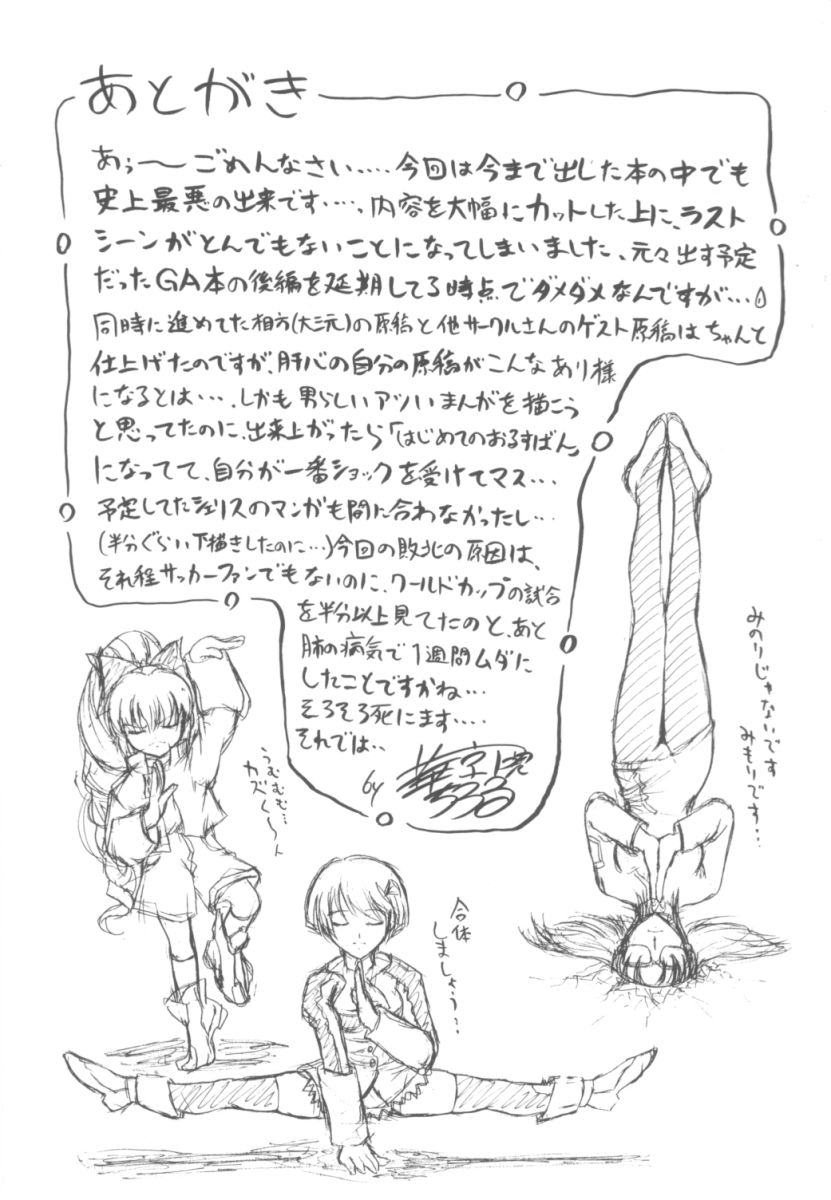 あとがき
あぅ〜ごめんなさい‥‥今回は今まで出した本の中でも
史上最悪の出来です‥‥、内容を大幅にカットした上に、ラスト
シーンがとんでもないことになってしまいました、元々出す予定
だったGA本の後編を延期してる時点でダメダメなんですが‥‥
同時に進めてた相方(大三元)の原稿と他サークルさんのゲスト原稿はちゃんと
仕上げたのですが、肝心の自分の原稿がこんなあり様
になるとは‥‥、しかも男らしいアツいまんがを描こう
と思ってたのに、出来上がったら「はじめてのおるすばん」
になってて、自分が一番ショックを受けてマス‥‥
予定してたシェリスのマンガも間に合わなかったし‥‥
(半分ぐらい下描きしたのに‥‥)今回の敗北の原因は、
それ程サッカーファンでもないのに、ワールドカップの試合
を半分以上見てたのと、あと
肺の病気で1週間ムダに
したことですかね‥‥
そろそろ死にます‥‥
それでは‥
by
うむむむ‥‥
カズく〜ん
合体
しましょう‥?
みのりじゃないです
みもりです‥‥